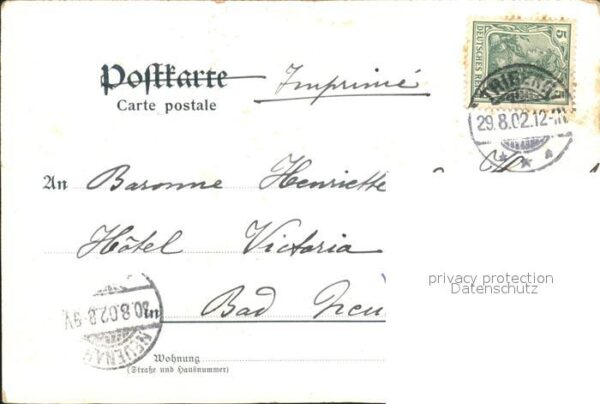 Postkarte Imprimé
Carte postale
5
DEUTSCHES R
29.8.02.12-
An Baronne Henriette
Hôtel Victoria
in Bad Neu
30.8.02.8-9V
NEUENAH
privacy protection
Datenschutz
Wohnung
(Straße und Hausnummer)